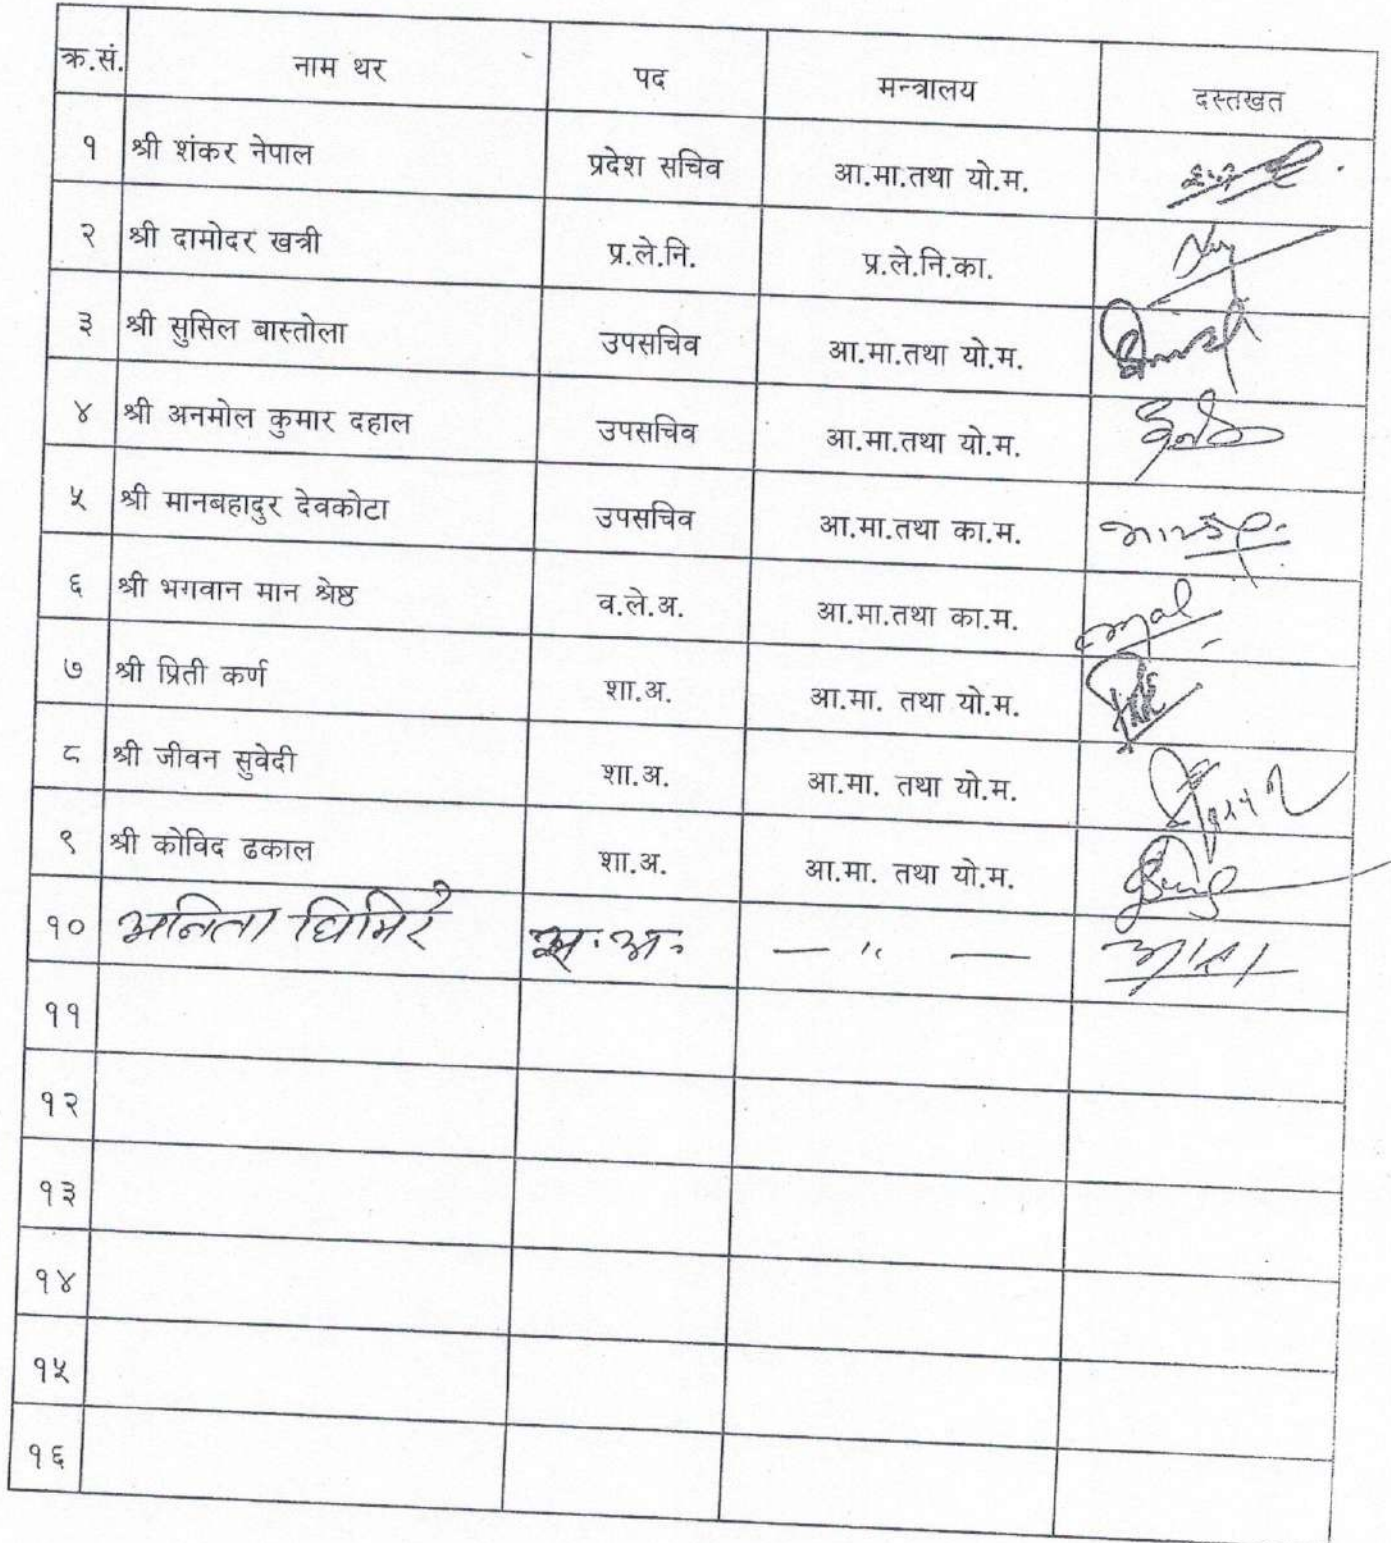 क्र.सं. नाम थर पद मन्त्रालय दस्तखत
१ श्री शंकर नेपाल प्रदेश सचिव आ.मा.तथा यो.म.
२ श्री दामोदर खत्री प्र.ले.नि. प्र.ले.नि.का.
३ श्री सुसिल बास्तोला उपसचिव आ.मा.तथा यो.म.
४ श्री अनमोल कुमार दहाल उपसचिव आ.मा.तथा यो.म.
५ श्री मानबहादुर देवकोटा उपसचिव आ.मा.तथा का.म.
६ श्री भगवान मान श्रेष्ठ व.ले.अ. आ.मा.तथा का.म.
७ श्री प्रिती कर्ण शा.अ. आ.मा. तथा यो.म.
८ श्री जीवन सुवेदी शा.अ. आ.मा. तथा यो.म.
९ श्री कोविद ढकाल शा.अ. आ.मा. तथा यो.म.
१० अनिता घिमिरे — " —
११
१२
१३
१४
१५
१६